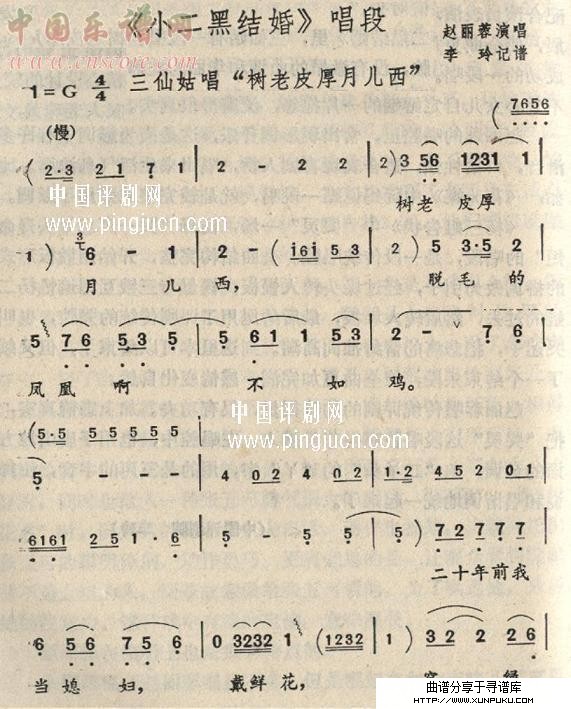 中国乐谱网
www.cnscore.com
《小二黑结婚》唱段
赵丽蓉演唱
李玲记谱
1=G 4/4 三仙姑唱“树老皮厚月儿西”
(慢)
(7656
(2·3 2 1 7 1 | 2 - 2 2 | 2) 3 56 1231 1
树老 皮厚
中国评剧网
www.pingjucn.com
1) 6 - 1 | 1 - (1 161 | 3 3) 5 3·5 2
月 儿 西, 脱毛的
5 76 5 3 3 | 5 61 1 53 | 2 - - 7
凤凰啊 不 如 鸡。
中国评剧网
www.pingjucn.com
(5·5 5 5 5 5 5 5
5) - - - | 4 02 4 02 | 1 2 4 5 2 0 1
6161 2 3 5 5 | 5 5 5 5) | 7 2 7 7 7
二十年前我
6 5 6 7 5 | 0 3232 1 (1232 | 1) 3 2 2 26
当媳 妇, 戴鲜花,
曲谱分享于寻谱库
WWW.XUNPUKU.COM